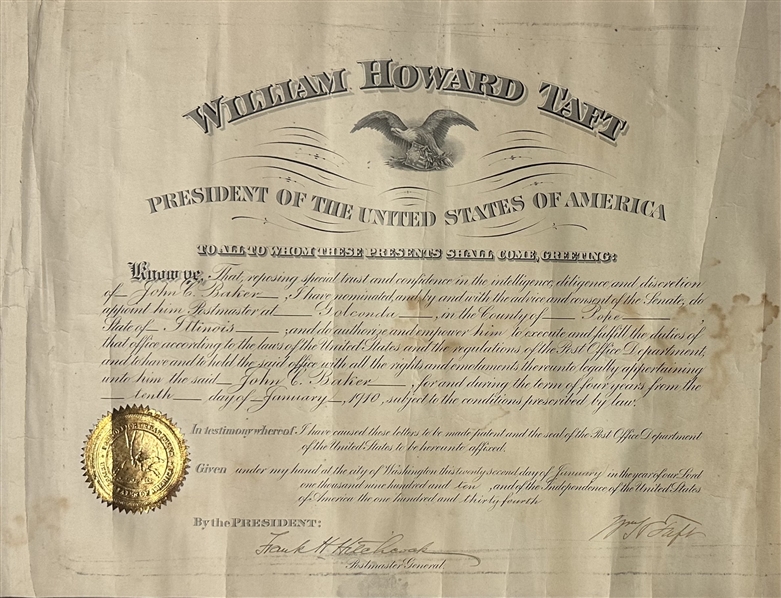 WILLIAM HOWARD TAFT
PRESIDENT OF THE UNITED STATES OF AMERICA
TO ALL TO WHOM THESE PRESENTS SHALL COME, GREETING:
Know ye, That, reposing special trust and confidence in the intelligence, diligence and discretion
of John C. Baker, I have nominated, and by and with the advice and consent of the Senate, do
appoint him Postmaster at Golconda, in the County of Pope,
State of Illinois, and do authorize and empower him to execute and fulfill the duties of
that office according to the laws of the United States and the regulations of the Post Office Department,
and to have and to hold the said office with all the rights and emoluments thereunto legally appertaining
unto him the said John C. Baker, for and during the term of four years from the
tenth day of January, 1910, subject to the conditions prescribed by law.
In testimony whereof, I have caused these letters to be made patent and the seal of the Post Office Department
of the United States to be hereunto affixed.
Given under my hand at the city of Washington this twenty second day of January in the year of our Lord
one thousand nine hundred and ten, and of the Independence of the United States
of America the one hundred and thirty fourth
By the PRESIDENT:
Wm H Taft
Frank H. Hitchcock
Postmaster General